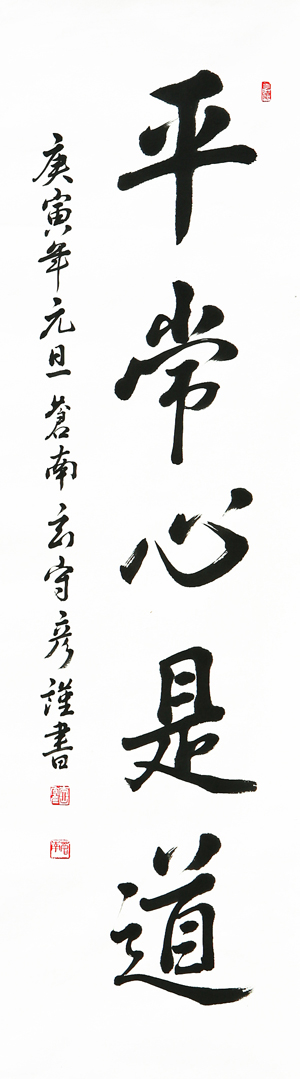 平常心是道
庚寅年元旦 蒼南 玄守彦 謹書